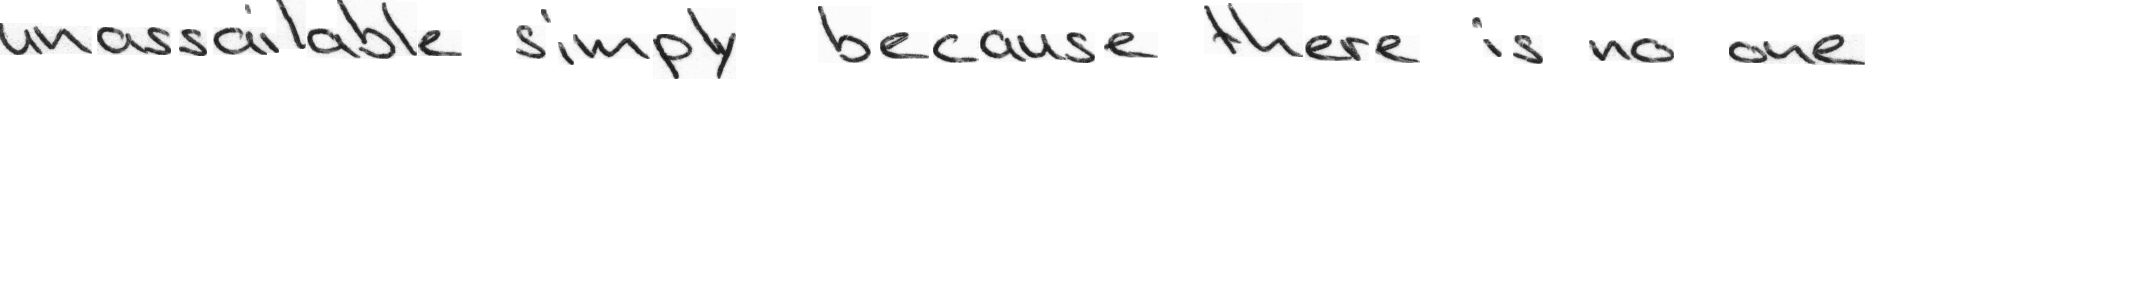 unassailable simply because there is no one